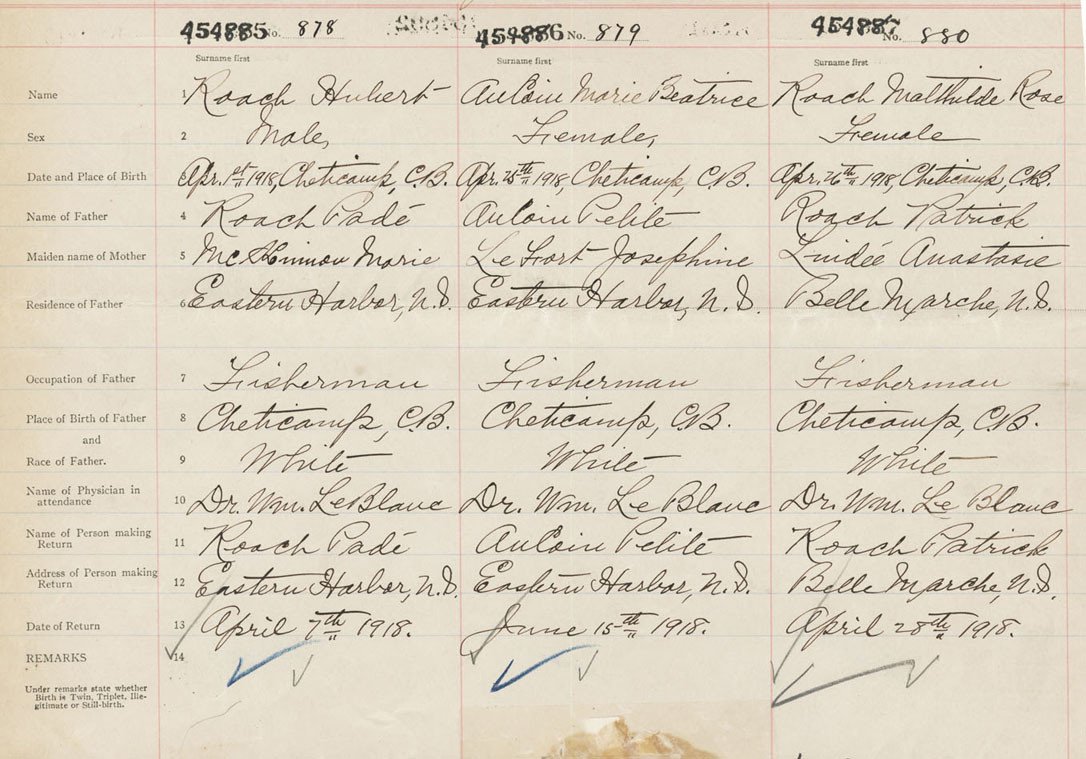 454885 No. 878 454886 No. 879 454887 No. 880
Surname first Surname first Surname first
Name 1 Roach Hubert AuCoin Marie Beatrice Roach Mathilde Rose
Sex 2 Male, Female, Female
Date and Place of Birth 3 Apr. 1st 1918, Cheticamp, C.B. Apr. 25th 1918, Cheticamp, C.B. Apr. 26th 1918, Cheticamp, C.B.
Name of Father 4 Roach Padé AuCoin Pelite Roach Patrick
Maiden name of Mother 5 McKinnon Marie LeFort Josephine Lindée Anastasie
Residence of Father 6 Eastern Harbor, N.S. Eastern Harbor, N.S. Belle Marche, N.S.
Occupation of Father 7 Fisherman Fisherman Fisherman
Place of Birth of Father 8 Cheticamp, C.B. Cheticamp, C.B. Cheticamp, C.B.
and
Race of Father. 9 White White White
Name of Physician in attendance 10 Dr. Wm. LeBlanc Dr. Wm. Le Blanc Dr. Wm. Le Blanc
Name of Person making Return 11 Roach Padé AuCoin Pelite Roach Patrick
Address of Person making Return 12 Eastern Harbor, N.S. Eastern Harbor, N.S. Belle Marche, N.S.
Date of Return 13 April 7th 1918. June 15th 1918. April 28th 1918.
REMARKS 14
Under remarks state whether
Birth is Twin, Triplet, Ille-
gitimate or Still-birth.